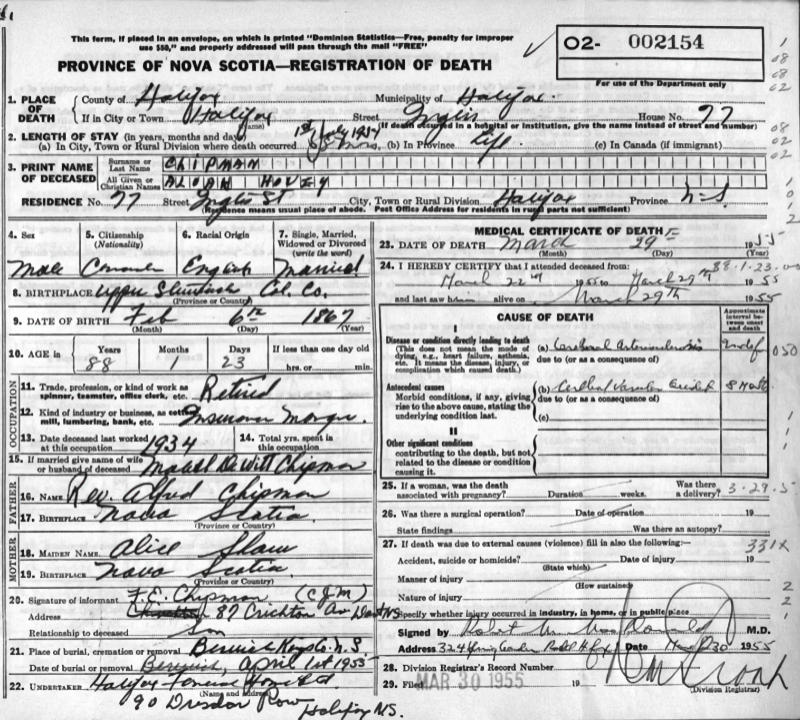 This form, if placed in an envelope, on which is printed "Dominion Statistics—Free, penalty for improper
use $50," and properly addressed will pass through the mail "FREE"
PROVINCE OF NOVA SCOTIA—REGISTRATION OF DEATH
O2- 002154
For use of the Department only
1. PLACE OF DEATH County of Halifax Municipality of Halifax
If in City or Town Halifax (name) Street Inglis House No. 77
(If death occurred in a hospital or institution, give the name instead of street and number)
2. LENGTH OF STAY (in years, months and days)
(a) In City, Town or Rural Division where death occurred 1st July 1954 8 Mos. (b) In Province Life (c) In Canada (if immigrant)
3. PRINT NAME OF DECEASED Surname or Last Name CHIPMAN
All Given or Christian Names HOVEY
RESIDENCE No. 77 Street Inglis St City, Town or Rural Division Halifax Province N-S
(Residence means usual place of abode. Post Office Address for residents in rural parts not sufficient)
4. Sex Male
5. Citizenship (Nationality)
6. Racial Origin English
7. Single, Married, Widowed or Divorced (write the word) Married
8. BIRTHPLACE Upper Col. Co.
(Province or Country)
9. DATE OF BIRTH Feb 6th 1867
(Month) (Day) (Year)
10. AGE in Years 88 Months 1 Days 23 If less than one day
hrs. or min.
OCCUPATION
11. Trade, profession, or kind of work as
spinner, teamster, office clerk, etc. Retired
12. Kind of industry or business, as cotton
mill, lumbering, bank, etc. Insurance
13. Date deceased last worked
at this occupation 1934
14. Total yrs. spent in
this occupation
15. If married give name of wife
or husband of deceased DeWitt Chipman
FATHER
16. NAME Rev. Alfred Chipman
17. BIRTHPLACE Nova Scotia
(Province or Country)
MOTHER
18. MAIDEN NAME Alice Shaw
19. BIRTHPLACE Nova Scotia
(Province or Country)
20. Signature of informant F.E. Chipman (CJM)
Address 87 Crichton Av Dart NS
Relationship to deceased Son
21. Place of burial, cremation or removal Berwick Kings Co. N.S.
Date of burial or removal Berwick, April 1st 1955
22. UNDERTAKER Halifax Funeral Home Ltd
(Name and Address)
90 Dresden Row Halifax NS.
MEDICAL CERTIFICATE OF DEATH
23. DATE OF DEATH March 29th 1955
(Month) (Day)
88.1.23.00
24. I HEREBY CERTIFY that I attended deceased from:
March 22nd 1955 to March 29th 1955
and last saw him alive on March 29th 1955
CAUSE OF DEATH
Approximate interval between onset and death
I
Disease or condition directly leading to death
(This does not mean the mode of
dying, e.g., heart failure, asthenia,
etc. It means the disease, injury, or
complication which caused death.)
(a) Cerebral Arteriosclerosis
due to (or as a consequence of)
050
Antecedent causes
Morbid conditions, if any, giving
rise to the above cause, stating the
underlying condition last.
(b) Cerebral Vascular Accident 8 Months
due to (or as a consequence of)
(c)
II
Other significant conditions
contributing to the death, but not
related to the disease or condition
causing it.
25. If a woman, was the death
associated with pregnancy? Duration weeks. Was there
a delivery?
3-29.5
26. Was there a surgical operation? Date of operation 19
State findings Was there an autopsy?
27. If death was due to external causes (violence) fill in also the following:
331X
Accident, suicide or homicide? Date of injury 19
(State which)
Manner of injury
(How sustained)
Nature of injury
Specify whether injury occurred in industry, in home, or in public place
Signed by Robert M. MacDonald M.D.
Address 324 Spring Garden Road Hfx Date March 30 1955
28. Division Registrar's Record Number
29. Filed MAR 30 1955
(Division Registrar)